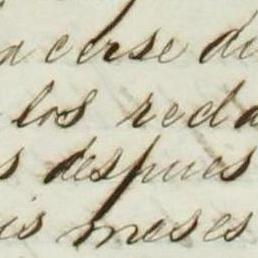 acerse di
los reda
s despues
is meses